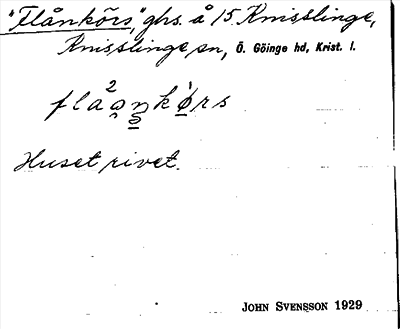 "Flånkörs," ghs. å 15 Knisslinge,
Knisslinge sn, Ö. Göinge hd, Krist. l.
flå2ŋkö̀rs
Huset rivet.
JOHN SVENSSON 1929